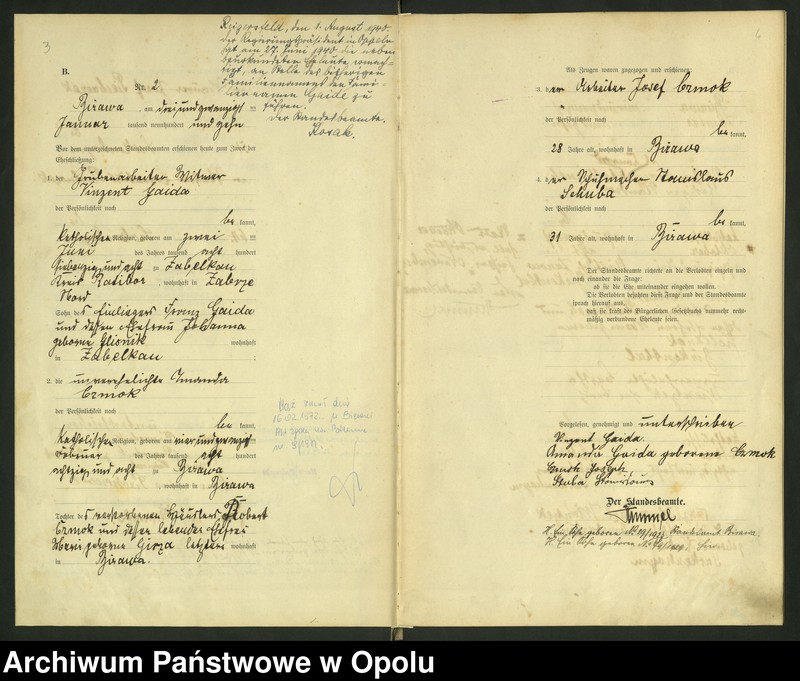 3
Reigersfeld, den 1. August 1940.
Der Regierungspräsident in Oppeln
hat am 27. Juni 1940 die neben
beurkundeten Eheleute ermäch-
tigt, an Stelle des bisherigen
Familiennamens den Fami-
liennamen Gaide zu
führen.
Der Standesbeamte.
Kosak.
B.
Nr. 2
Birawa, am dreiundzwanzigsten
Januar tausend neunhundert und zehn
Vor dem unterzeichneten Standesbeamten erschienen heute zum Zweck der
Eheschließung:
1. der Grubenarbeiter Witwer
Vinzent Gaida
der Persönlichkeit nach
be kannt,
katholischer Religion, geboren am zwei
Juni des Jahres tausend acht hundert
siebenzig und acht zu Zabelkau
Kreis Ratibor, wohnhaft in Zaborze
Nord
Sohn des Einliegers Franz Gaida
und dessen Ehefrau Johanna
geborene Glisnik wohnhaft
in Zabelkau
2. die unverehelichte Amanda
Czmok
der Persönlichkeit nach
be kannt,
katholischer Religion, geboren am vierundzwanzig
des Jahres tausend acht hundert
achtzig und acht zu Birawa
, wohnhaft in Birawa
Tochter des verstorbenen Häuslers Robert
Czmok und dessen lebender Ehefrau
Marie geborene Girza letztere wohnhaft
in Birawa.
Mąż zmarł dnia
16.02.1972. w
6
Als Zeugen waren zugezogen und erschienen:
3. der Arbeiter Josef Czmok
der Persönlichkeit nach
be kannt,
28 Jahre alt, wohnhaft in Birawa
4. der Schuhmacher Stanislaus
Sekuba
der Persönlichkeit nach
be kannt,
31 Jahre alt, wohnhaft in Birawa
Der Standesbeamte richtete an die Verlobten einzeln und
nach einander die Frage:
ob sie die Ehe miteinander eingehen wollen.
Die Verlobten bejahten diese Frage und der Standesbeamte
sprach hierauf aus,
daß sie kraft des Bürgerlichen Gesetzbuchs nunmehr recht-
mäßig verbundene Eheleute seien.
Vorgelesen, genehmigt und unterschrieben
Vinzent Gaida.
Amanda Gaida geborene Czmok
Czmok Joseph
Der Standesbeamte.
Archiwum Państwowe w Opolu